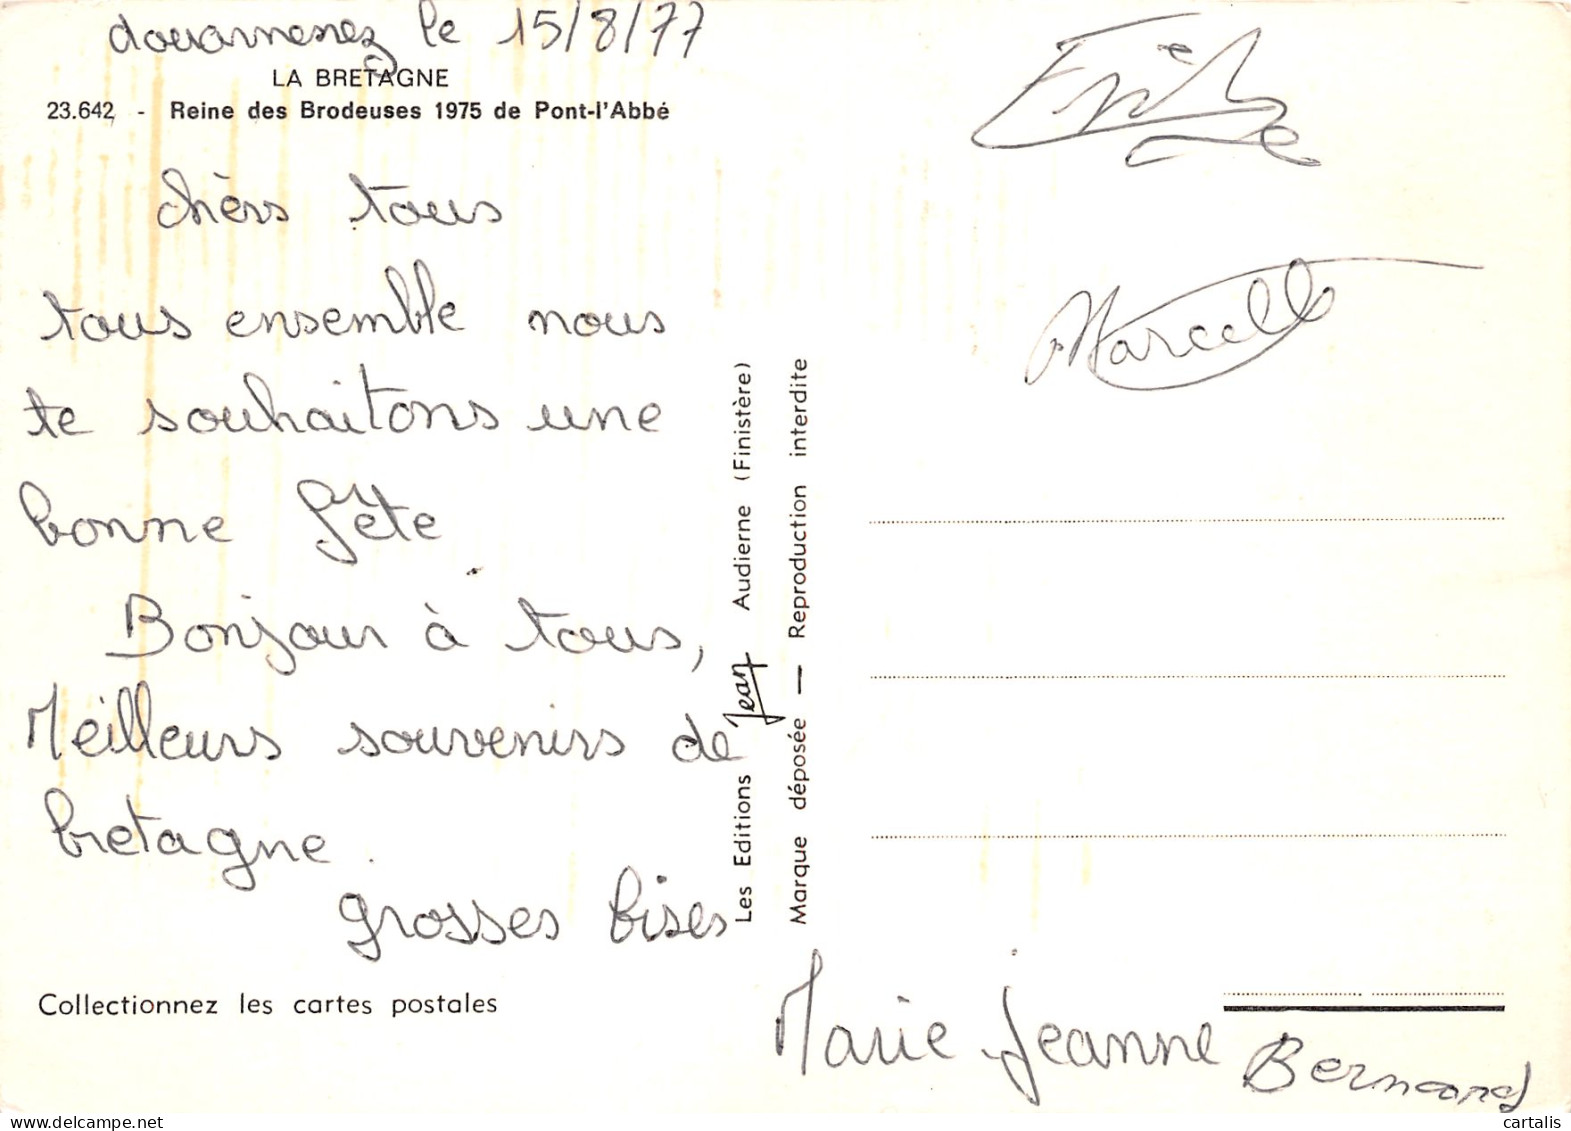 douarnenez le 15/8/77
LA BRETAGNE
23.642 - Reine des Brodeuses 1975 de Pont-l'Abbé
chèrs tous
tous ensemble nous
te souhaitons une
bonne fête
Bonjour à tous,
Meilleurs souvenirs de
bretagne.
grosses bises
Collectionnez les cartes postales
Les Editions Jean Audierne (Finistère)
Marque déposée — Reproduction interdite
Marcelle
Marie Jeanne Bernard
cartalis